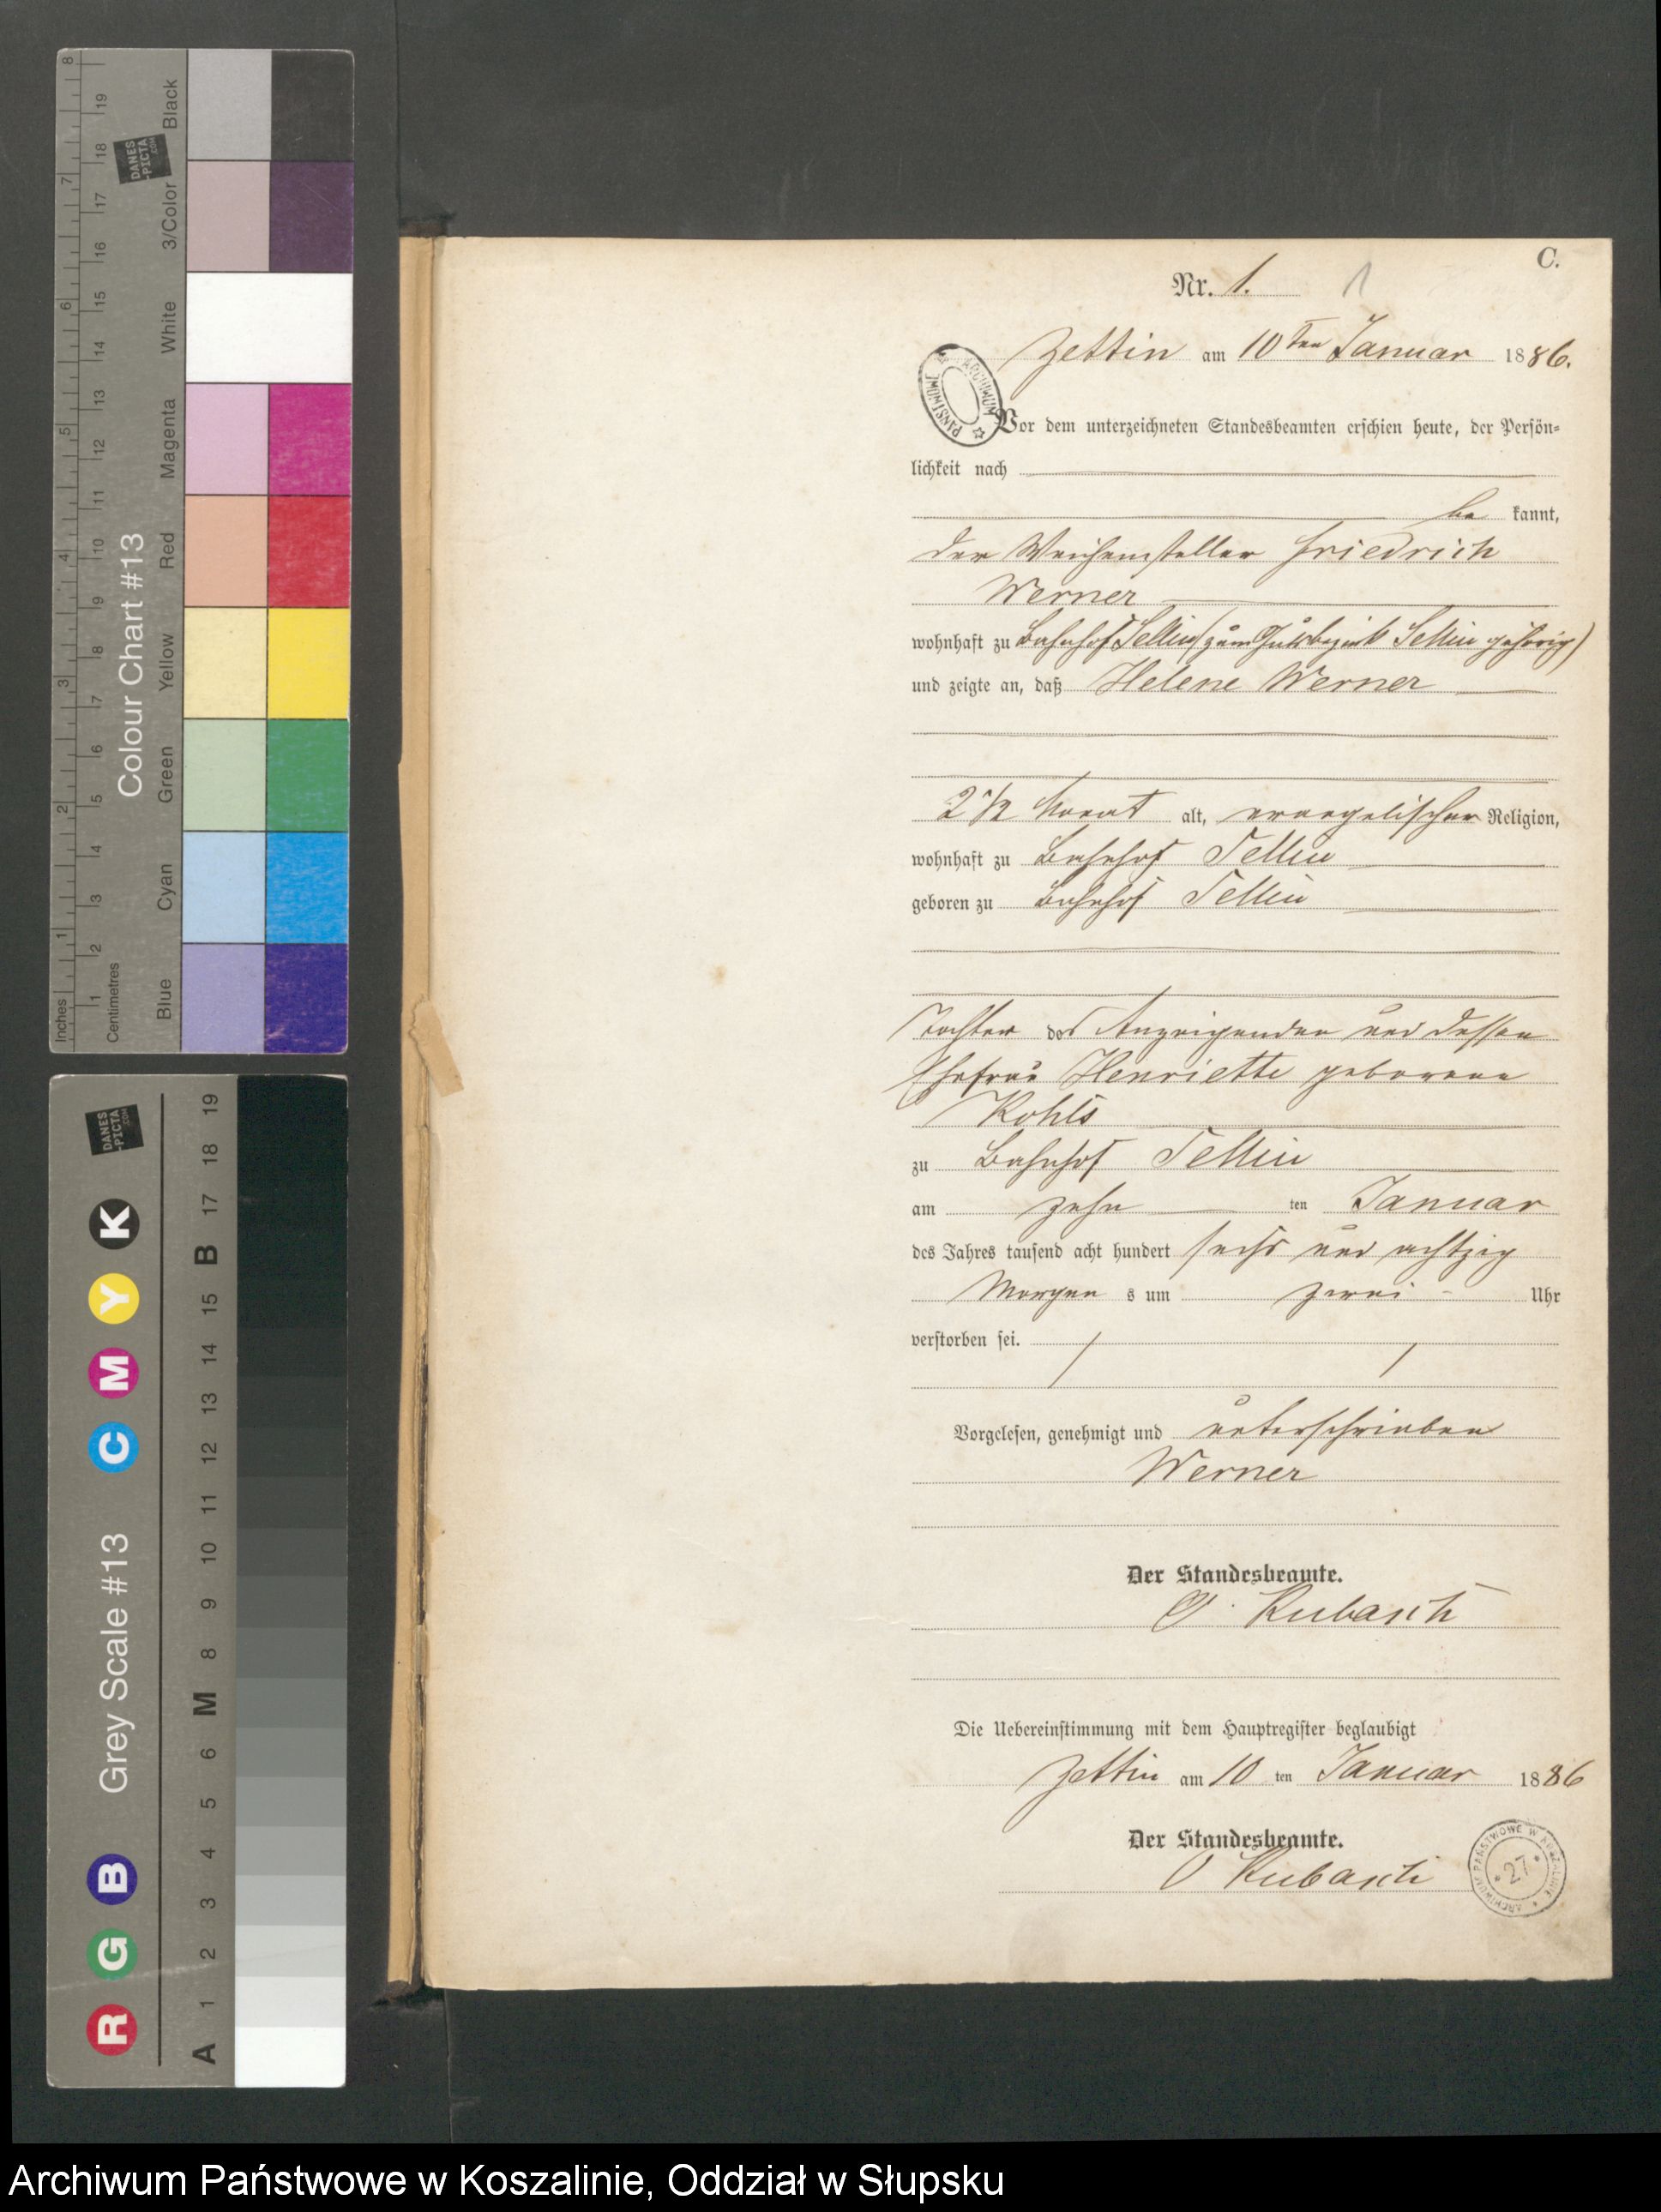 C.
Nr. 1. 1
Zettin am 10ten Januar 1886.
Vor dem unterzeichneten Standesbeamten erschien heute, der Persön-
lichkeit nach
be kannt,
der Weichensteller Friedrich
Werner
wohnhaft zu Bahnhof Sellin (zum Gutsbezirk Sellin gehörig)
und zeigte an, daß Helene Werner
2 1/2 Monat alt, evangelischer Religion,
wohnhaft zu Bahnhof Sellin
geboren zu Bahnhof Sellin
Tochter des Anzeigenden und dessen
Ehefrau Henriette geborene
Kohls
zu Bahnhof Sellin
am zehn ten Januar
des Jahres tausend acht hundert sechs und achtzig
Morgen s um zwei Uhr
verstorben sei.
Vorgelesen, genehmigt und unterschrieben
Werner
Der Standesbeamte.
Kubasch
Die Uebereinstimmung mit dem Hauptregister beglaubigt
Zettin am 10 ten Januar 1886
Der Standesbeamte.
Kubasch
ARCHIWUM PAŃSTWOWE
ARCHIWUM PAŃSTWOWE W KOSZALINIE
27
Colour Chart #13
Blue Cyan Green Yellow Red Magenta White 3/Color Black
Inches 1 2 3 4 5 6 7 8
Centimetres 1 2 3 4 5 6 7 8 9 10 11 12 13 14 15 16 17 18 19
DANES-PICTA.COM
Grey Scale #13
R G B C M Y K
A 1 2 3 4 5 6 M 8 9 10 11 12 13 14 15 B 17 18 19
DANES-PICTA.COM
Archiwum Państwowe w Koszalinie, Oddział w Słupsku